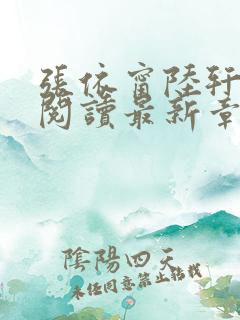 張依甯陸軒
閱讀最新章
陰陽四天
未經同意禁止轉載